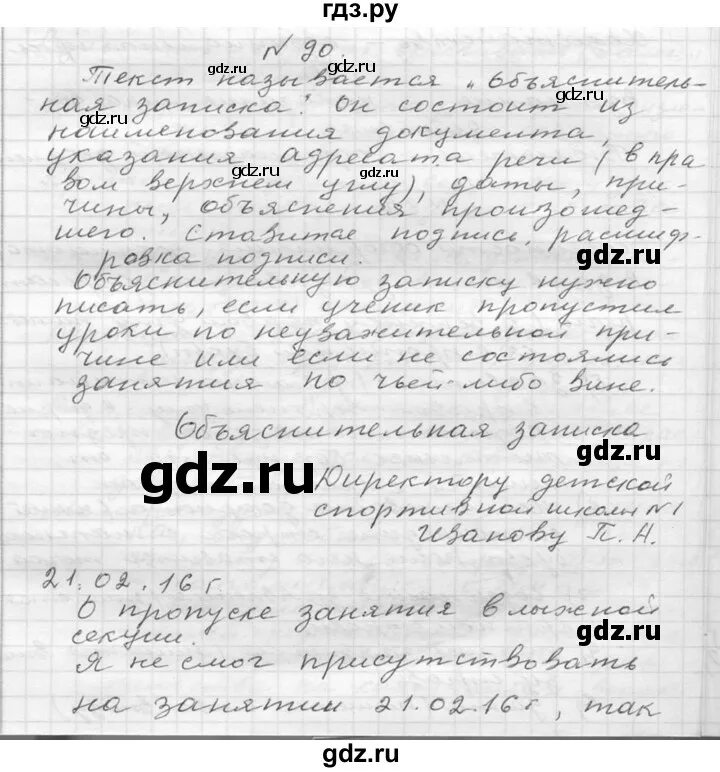 гдз.ру
№ 90.
Текст называется „Объяснитель-
ная записка". Он состоит из
наименования документа,
указания адресата речи (в пра
вом верхнем углу), даты, при-
чины, объяснения произошед-
шего. Ставится подпись, расшиф-
ровка подписи.
Объяснительную записку нужно
писать, если ученик пропустил
уроки по неуважительной при-
чине или если не состоялись
занятия по чьей-либо вине.
Объяснительная записка
Директору детской
спортивной школы №1
Иванову П. А.
21.02.16 г.
О пропуске занятия в лыжной
секции.
Я не смог присутствовать
на занятии 21.02.16 г, так
gdz.ru
gdz.ru
gdz.ru
gdz.ru
gdz.ru
gdz.ru
gdz.ru
gdz.ru
gdz.ru
gdz.ru